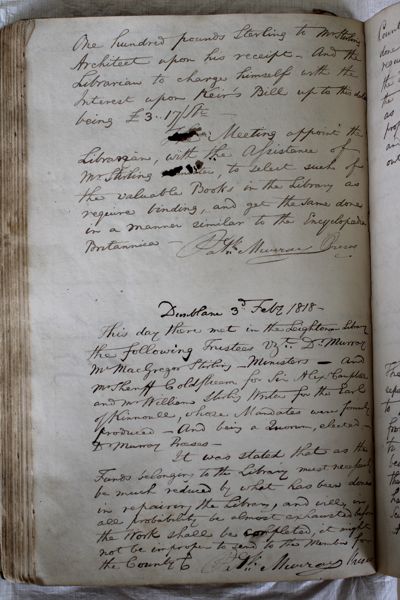 One hundred pounds Sterling to Mr Stirling
Architect upon his receipt - And the
Librarian to charge himself with the
Interest upon Keir's Bill up to this date
being £3. 17/
Meeting appoint the
Librarian, with the Assistance of
Mr Stirling to select such of
the valuable Books in the Library as
require binding, and get the same done
in a manner similar to the Encyclopaedia
Britannica - Patk Murray Preses
Dunblane 3d Feby 1818 -
This day there met in the Leighton Library
the following Trustees vizt. Dr Murray
Mr MacGregor Stirling - Ministers - And
Mr Sheriff Coldstream for Sir Alexr Campbell
and Mr William Stirling Writer for the Earl
of Kinnoull, whose Mandates were formerly
produced - And being a Quorum, elected -
Dr Murray Preses -
It was stated that as the
Funds belonging to the Library must necessarily
be much reduced by what has been done
in repairing the Library, and will, in
all probability be almost exhausted before
the Work shall be completed, it might
not be improper to send to the Member for
the County Patk Murray Preses